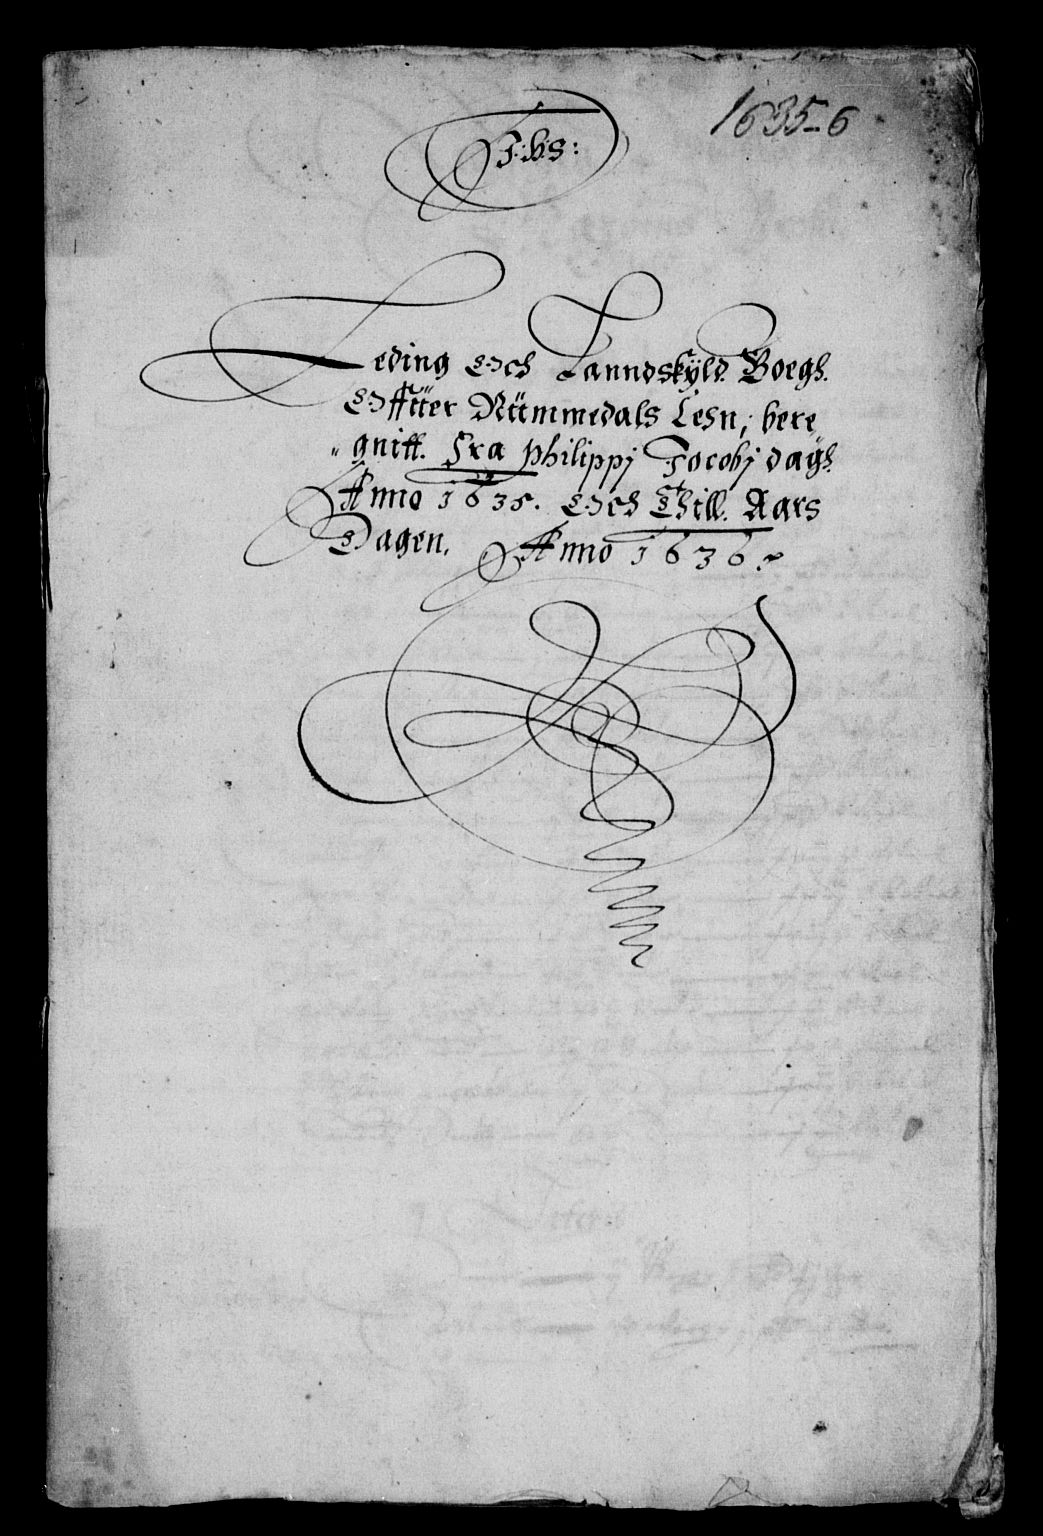 1635-6
J: H: S:
Leding Och Lanndskÿld Boegh.
Offuer Nümmedals Lehn, bere
gnitt. Fra Philippj Jacobj dagh.
Anno 1635. Och Thill Aars
Dagen, Anno 1636.